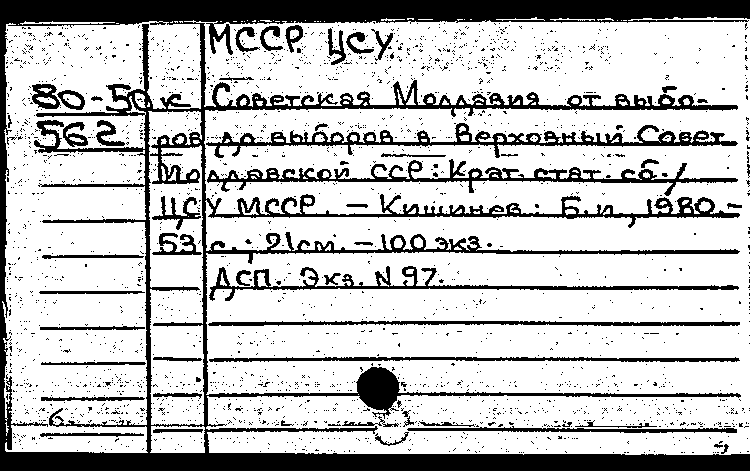 МССР. ЦСУ.
80-50к Советская Молдавия от выбо-
562 ров до выборов в Верховный Совет
Молдавской ССР: Крат. стат. сб. /
ЦСУ МССР. – Кишинев: Б.и., 1980.–
53 с.; 21см. – 100 экз.
ДСП. Экз. N 97.
б